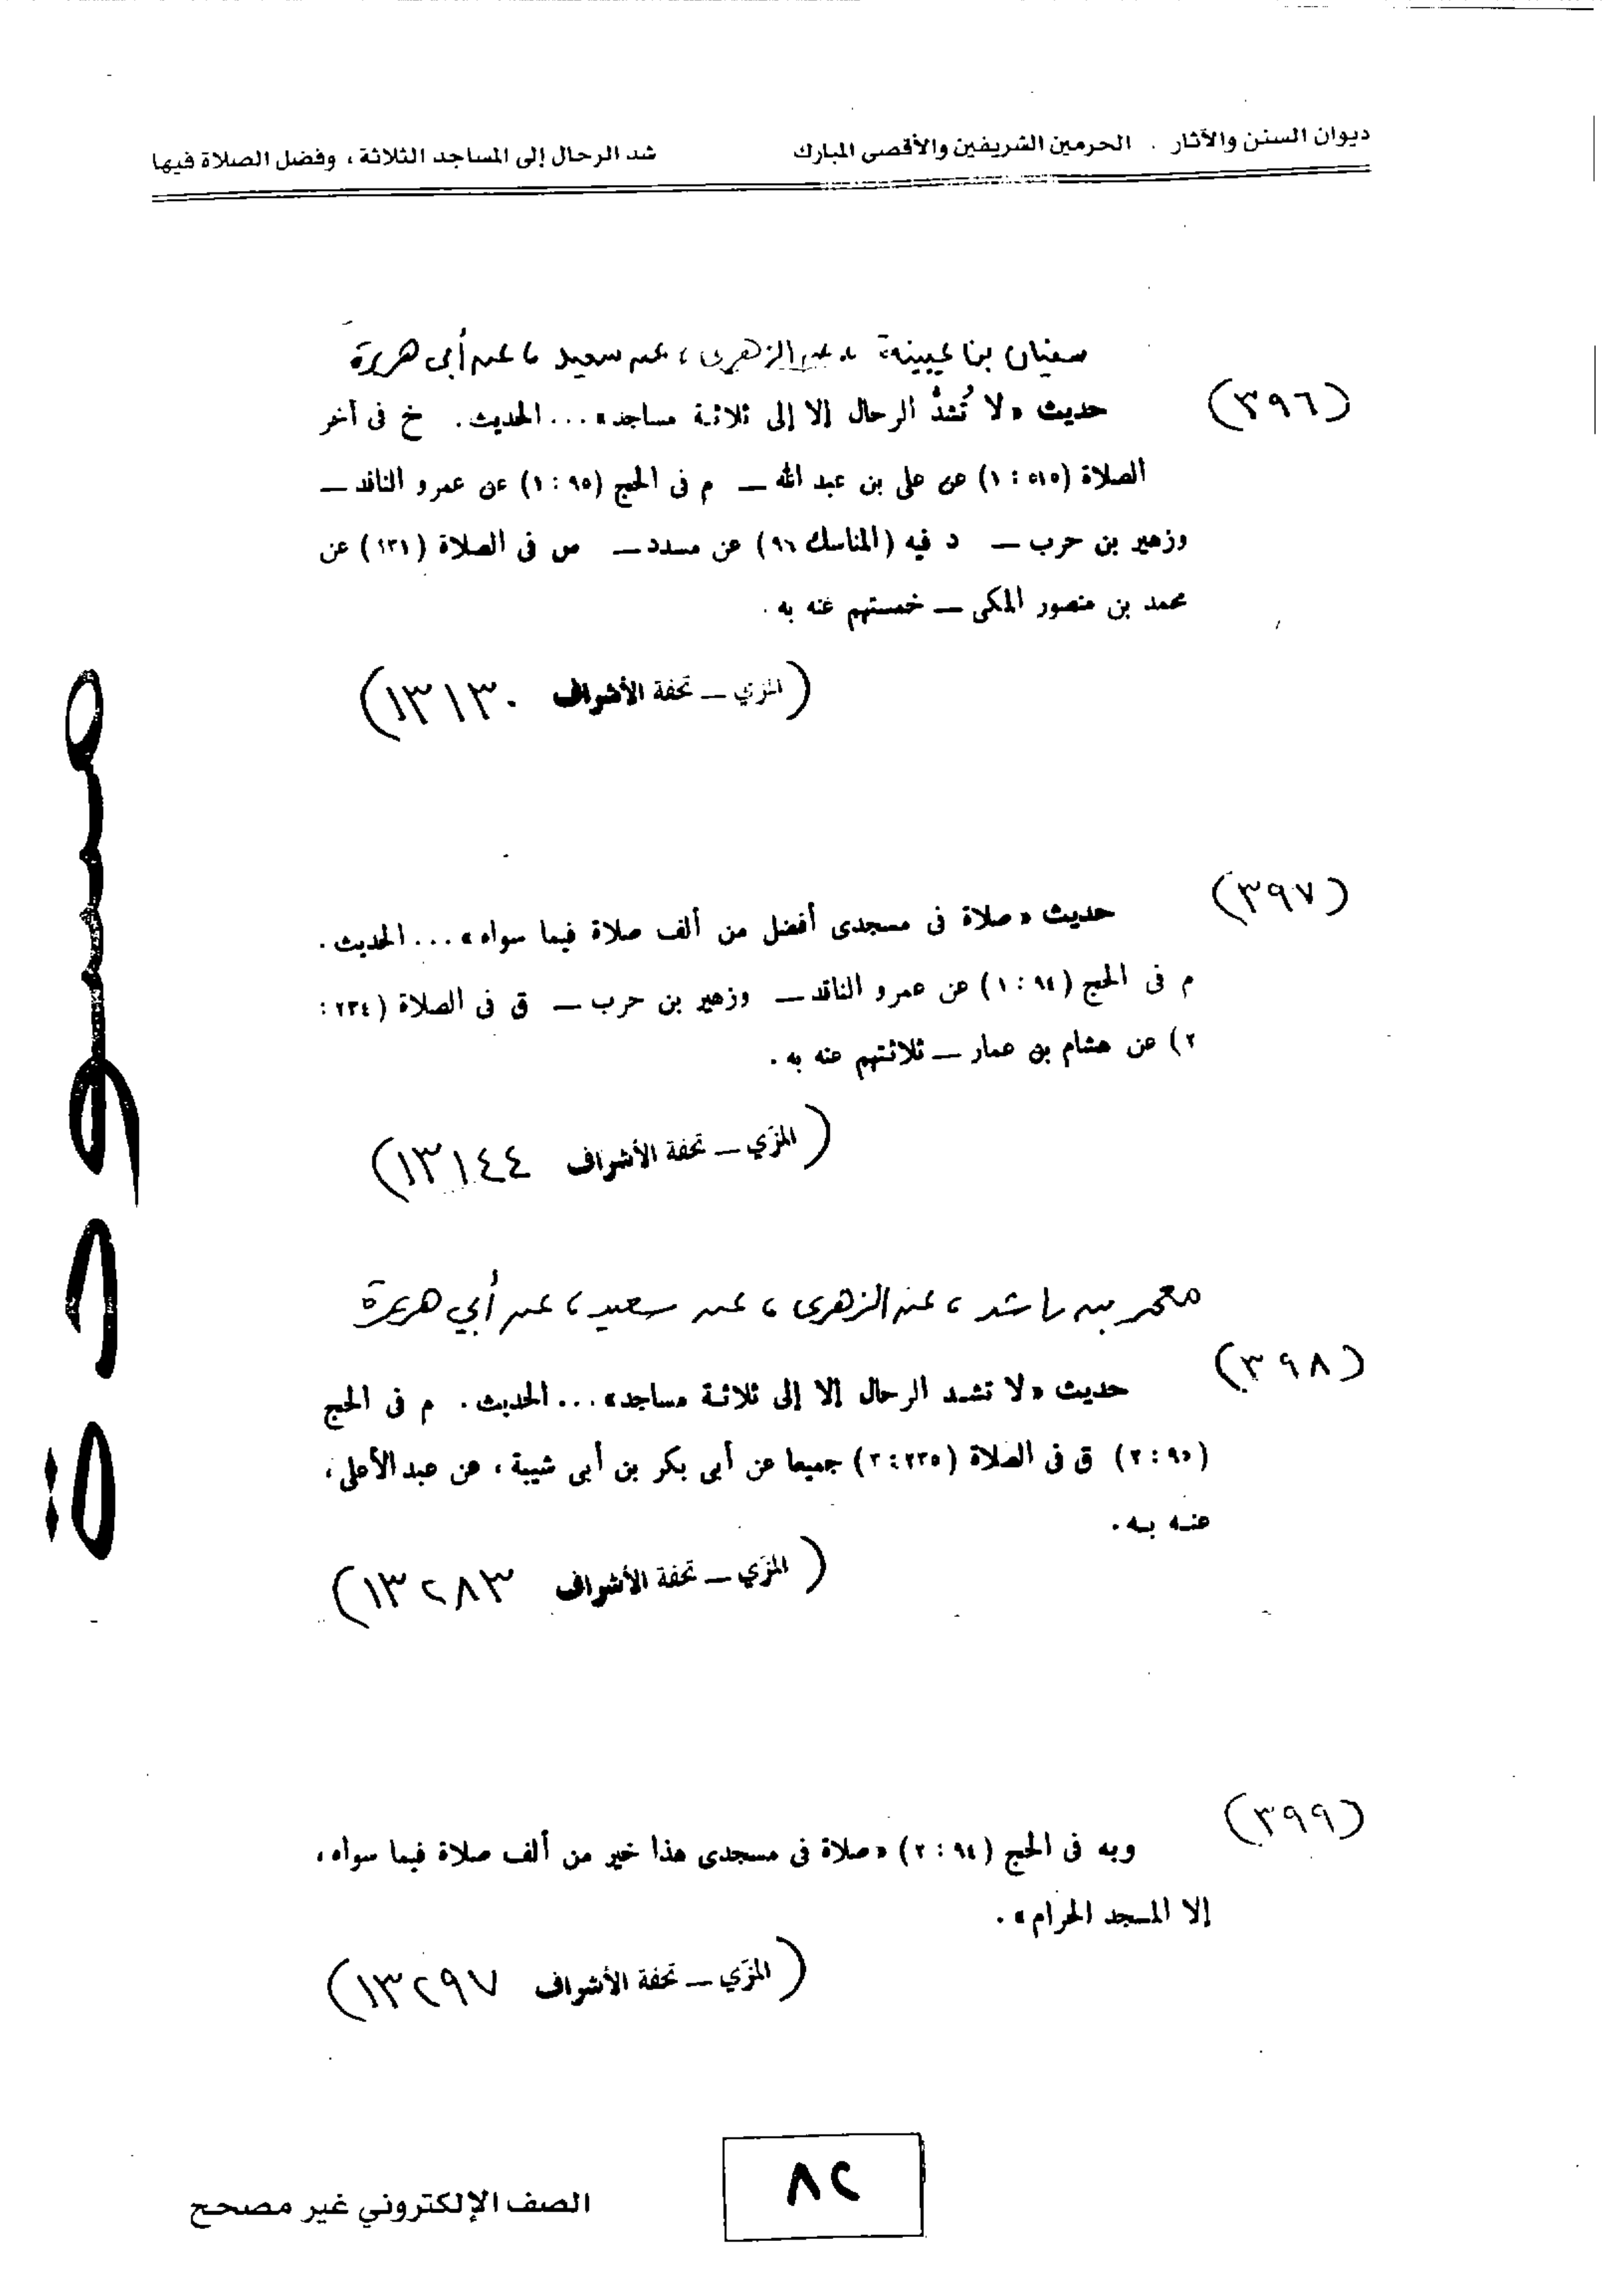 ديوان السنن والآثار . الحرمين الشريفين والأقصى المبارك شد الرحال إلى المساجد الثلاثة ، وفضل الصلاة فيها
سفيان بن عيينة ، عن الزهرى ، عن سعيد ، عن أبى هريرة
(٣٩٦) حديث «لا تُشدُّ الرحال إلا إلى ثلاثة مساجد» ... الحديث . خ فى آخر
الصلاة (٥١٥ : ١) عن على بن عبد الله — م فى الحج (٩٥ : ١) عن عمرو الناقد —
وزهير بن حرب — د فيه (المناسك ٩٦) عن مسدد — س فى الصلاة (١٣١) عن
محمد بن منصور المكى — خمستهم عنه به .
(المزي — تحفة الأشراف ١٣١٣٠)
(٣٩٧) حديث «صلاة فى مسجدى أفضل من ألف صلاة فيما سواه» ... الحديث .
م فى الحج (٩٤ : ١) عن عمرو الناقد — وزهير بن حرب — ق فى الصلاة (٢٣٤ :
٢) عن هشام بن عمار — ثلاثتهم عنه به .
(المزّي — تحفة الأشراف ١٣١٤٤)
معمر بن راشد ، عن الزهرى ، عن سعيد ، عن أبي هريرة
(٣٩٨) حديث «لا تشد الرحال إلا إلى ثلاثة مساجد» ... الحديث . م فى الحج
(٩٥ : ٢) ق فى الصلاة (٢٣٥ : ٢) جميعا عن أبى بكر بن أبى شيبة ، عن عبد الأعلى ،
عنه به .
(المزّي — تحفة الأشراف ١٣٢٨٣)
(٣٩٩) وبه فى الحج (٩٤ : ٢) «صلاة فى مسجدى هذا خير من ألف صلاة فيما سواه ،
إلا المسجد الحرام» .
(المزّي — تحفة الأشراف ١٣٢٩٧)
مسودة
٨٢
الصف الإلكتروني غير مصحح